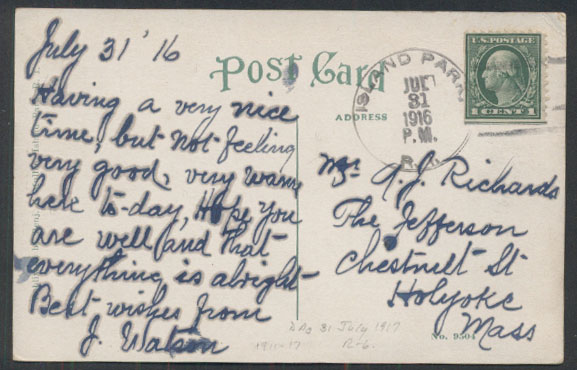 July 31 '16
Having a very nice
time, but not feeling
very good, very warm
here to-day, Hope you
are well and that
everything is alright
Best wishes from
J. Watson
Post Card
ADDRESS
ISLAND PARK
JUL
31
1916
P.M.
R.I.
U.S. POSTAGE
1 CENT 1
Mrs A. J. Richards
The Jefferson
Chestnut St
Holyoke
Mass
No. 9504
31 July 1917
R-6.